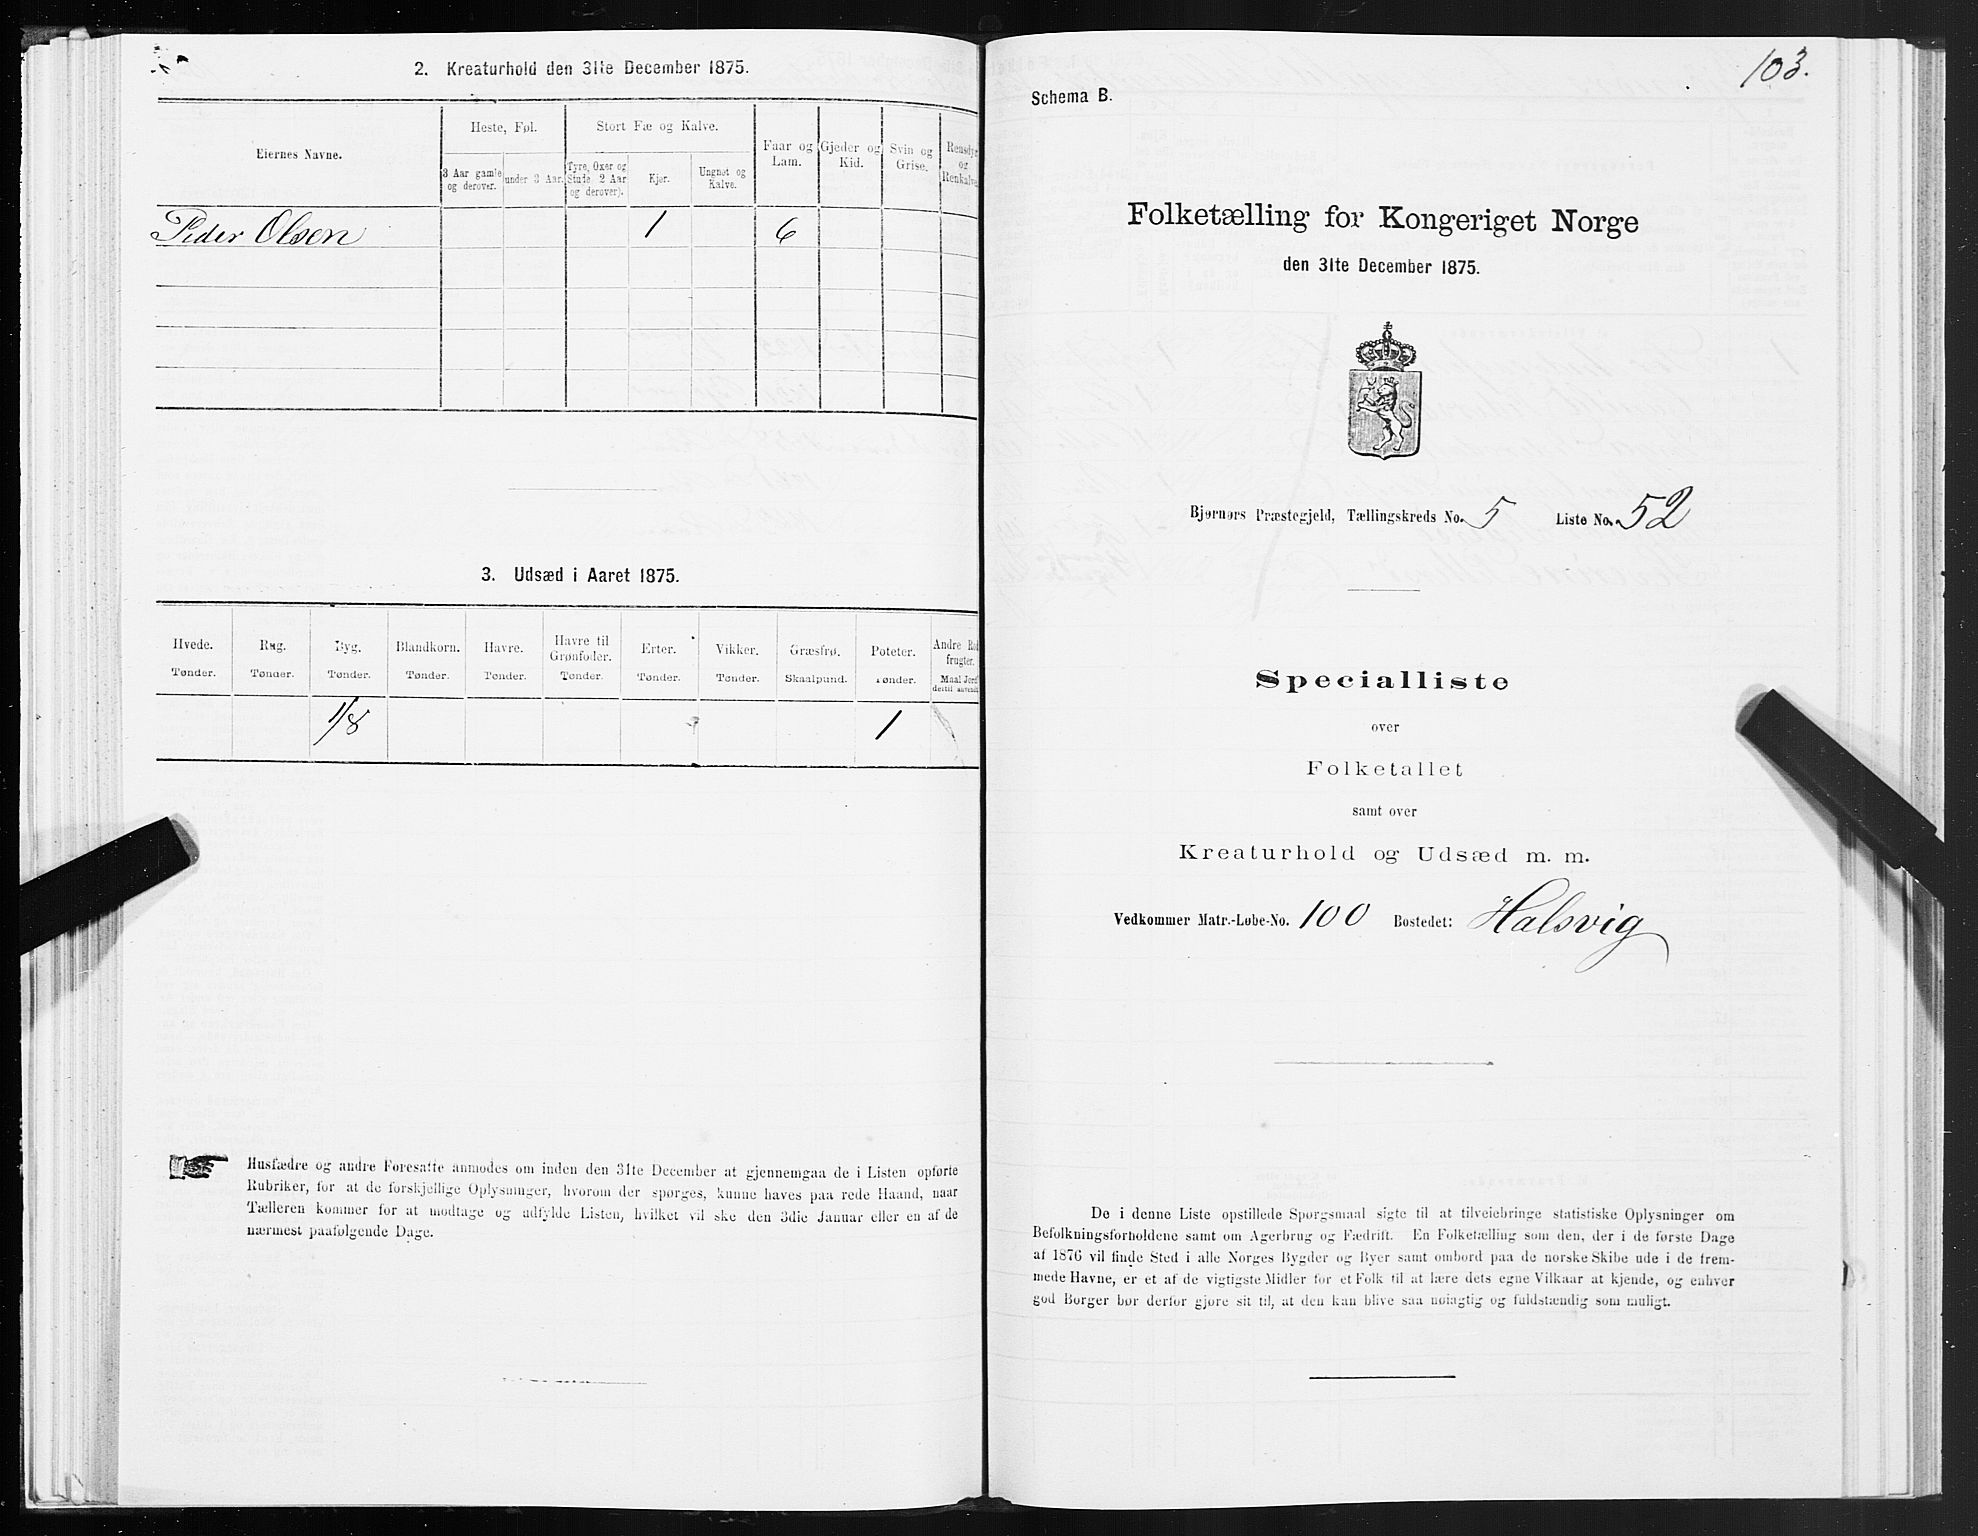 2. Kreaturhold den 31te December 1875.
Eiernes Navne.
Heste, Føl.
Stort Fæ og Kalve.
Faar og Lam.
Gjeder og Kid.
Svin og Grise.
Rensdyr og Renkalve.
3 Aar gamle og derover.
under 3 Aar.
Tyre, Oxer og Stude 2 Aar og derover).
Kjør.
Ungnøt og Kalve.
Peder Olsen 1 6
3. Udsæd i Aaret 1875.
Hvede. Rug. Byg. Blandkorn. Havre. Havre til Grønfoder. Erter. Vikker. Græsfrø. Poteter. Andre Rodfrugter.
Tønder. Tønder. Tønder. Tønder. Tønder. Tønder. Tønder. Tønder. Skaalpund. Tønder. Maal Jord dertil anvendt
1/8 1
Husfædre og andre Foresatte anmodes om inden den 31te December at gjennemgaa de i Listen opførte
Rubriker, for at de forskjellige Oplysninger, hvorom der spørges, kunne haves paa rede Haand, naar
Tælleren kommer for at modtage og udfylde Listen, hvilket vil ske den 3die Januar eller en af de
nærmest paafølgende Dage.
103.
Schema B.
Folketælling for Kongeriget Norge
den 31te December 1875.
Bjørnørs Præstegjeld, Tællingskreds No. 5 Liste No. 52
Specialliste
over
Folketallet
samt over
Kreaturhold og Udsæd m. m.
Vedkommer Matr.-Løbe-No. 100 Bostedet: Halsvig
De i denne Liste opstillede Spørgsmaal sigte til at tilveiebringe statistiske Oplysninger om
Befolkningsforholdene samt om Agerbrug og Fædrift. En Folketælling som den, der i de første Dage
af 1876 vil finde Sted i alle Norges Bygder og Byer samt ombord paa de norske Skibe ude i de frem-
mede Havne, er et af de vigtigste Midler for et Folk til at lære dets egne Vilkaar at kjende, og enhver
god Borger bør derfor gjøre sit til, at den kan blive saa nøiagtig og fuldstændig som muligt.